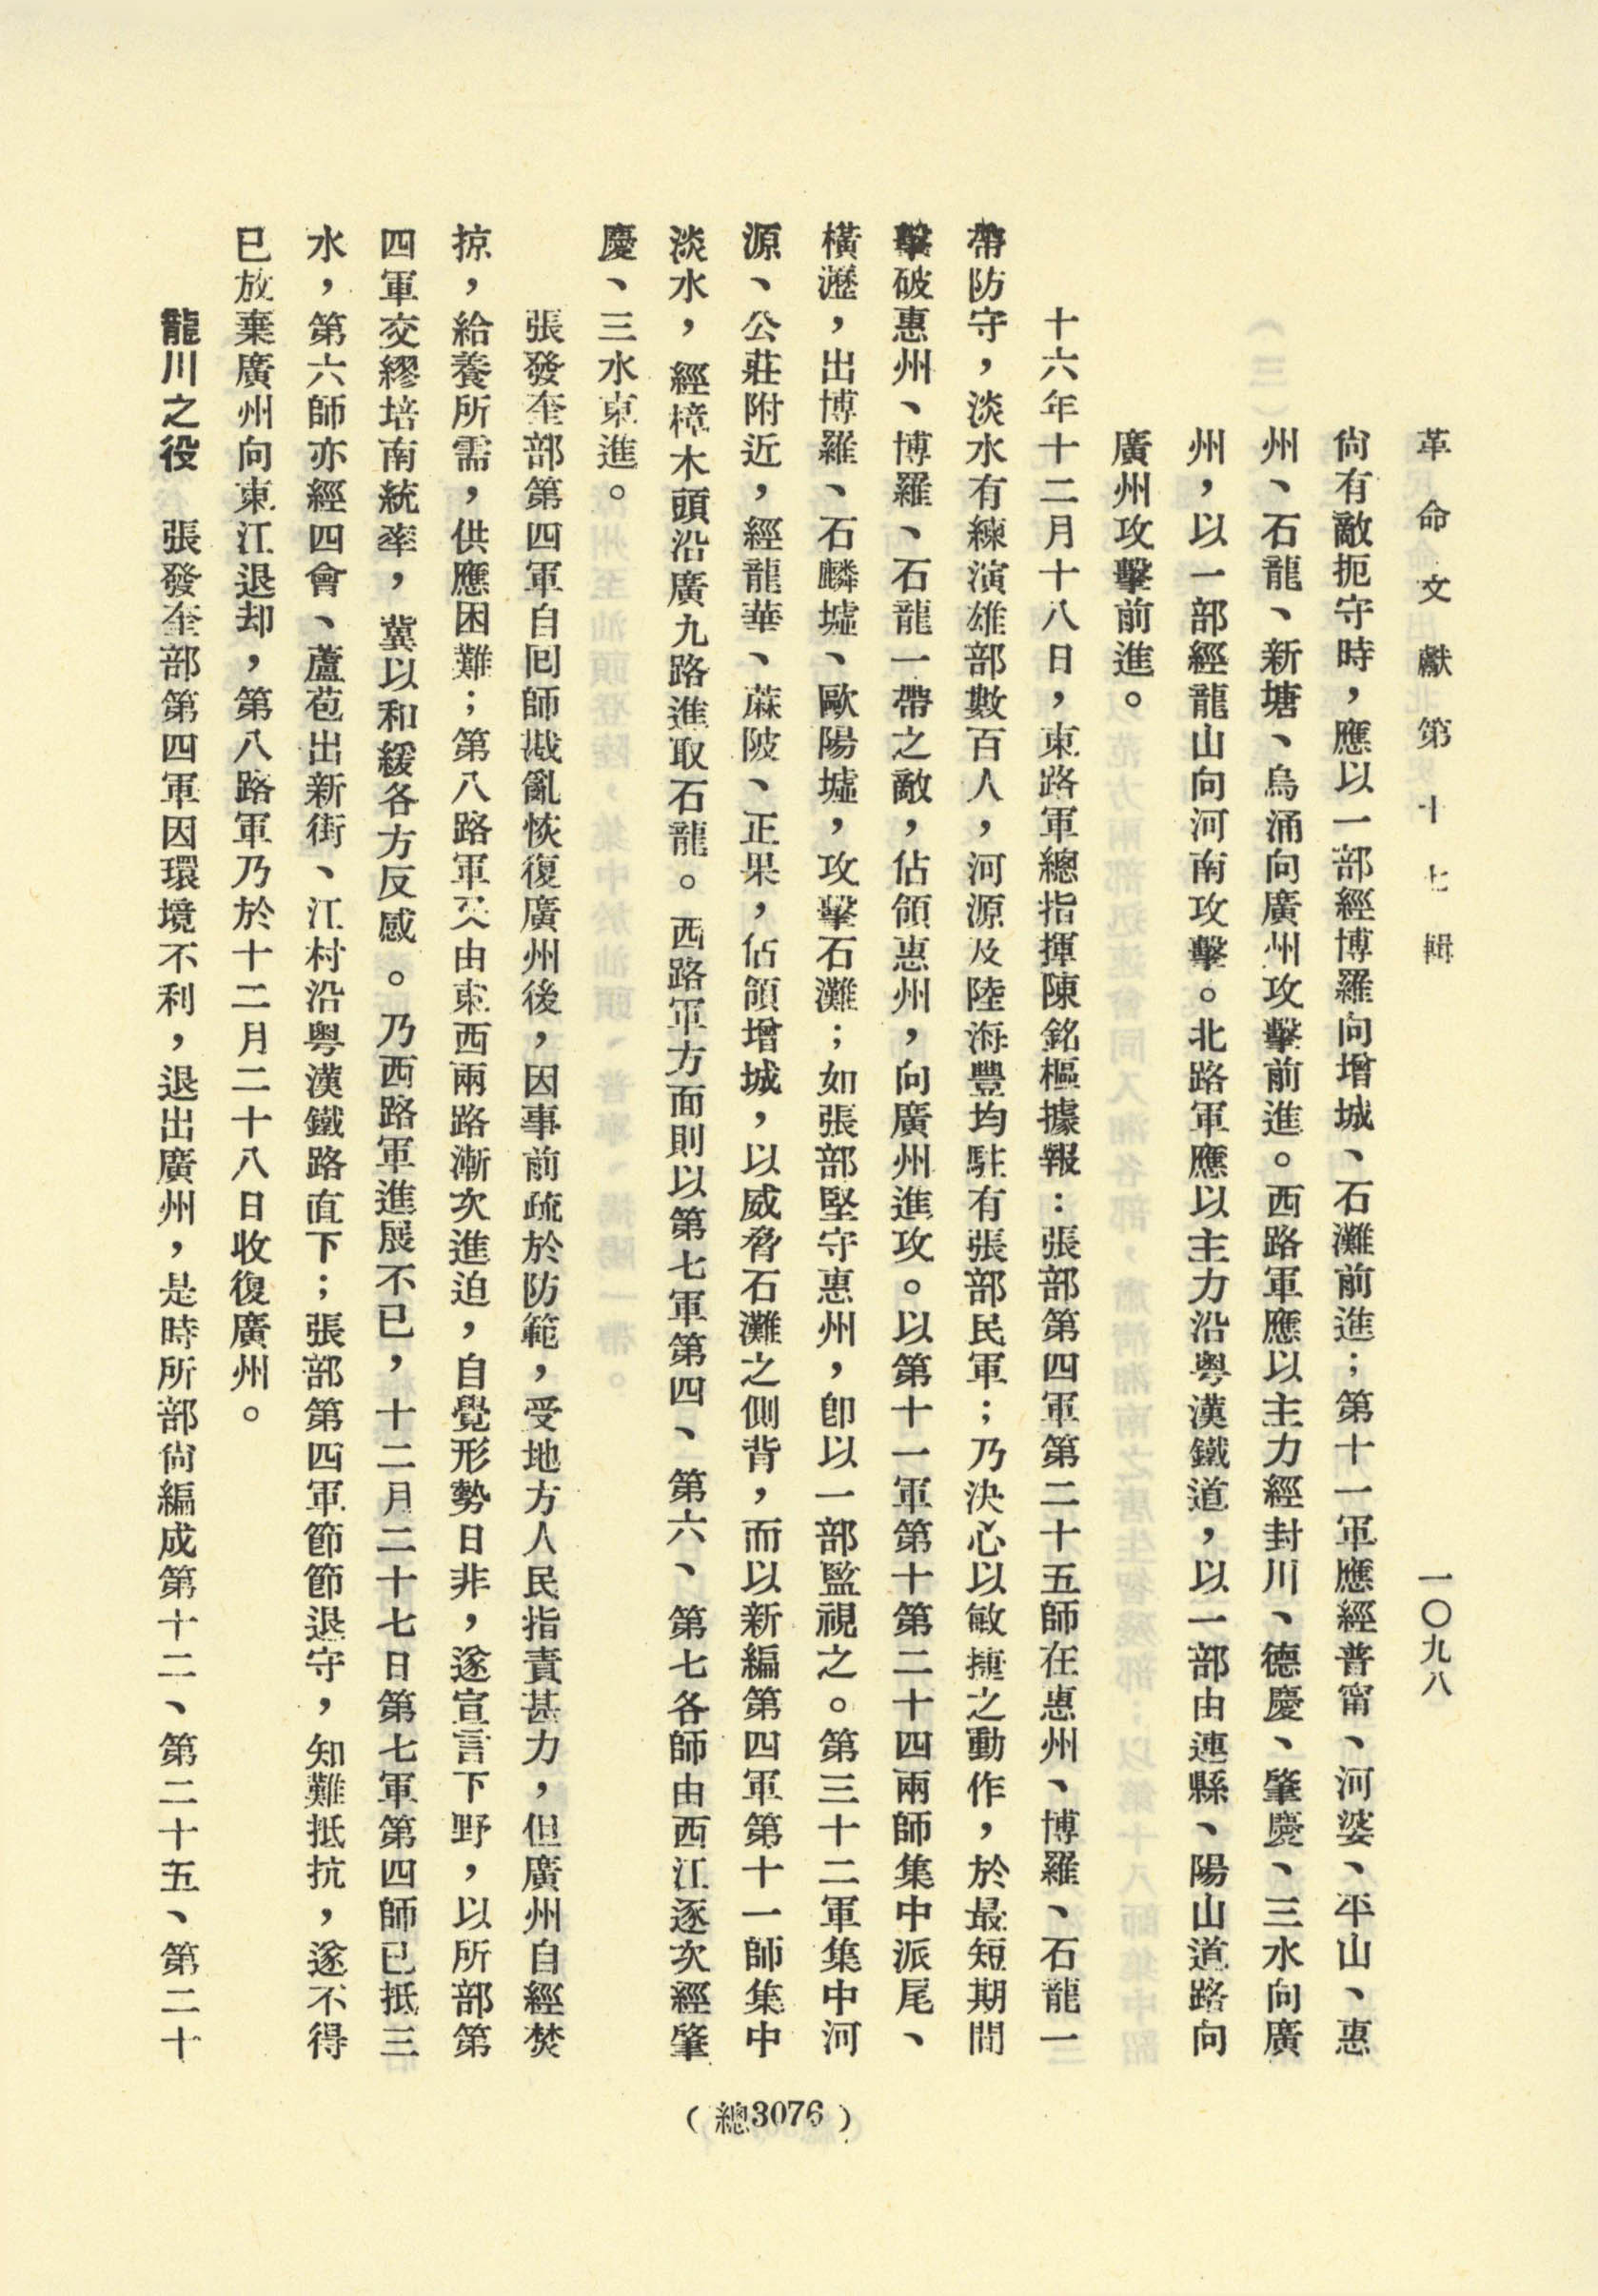 革命文獻第十七輯　一〇九八
尙有敵扼守時，應以一部經博羅向增城、石灘前進；第十一軍應經普甯、河婆、平山、惠
州、石龍、新塘、烏涌向廣州攻擊前進。西路軍應以主力經封川、德慶、肇慶、三水向廣
州，以一部經龍山向河南攻擊。北路軍應以主力沿粤漢鐵道，以一部由連縣、陽山道路向
廣州攻擊前進。
十六年十二月十八日，東路軍總指揮陳銘樞據報：張部第四軍第二十五師在惠州、博羅、石龍一
帶防守，淡水有練演雄部數百人，河源及陸海豐均駐有張部民軍；乃決心以敏捷之動作，於最短期間
擊破惠州、博羅、石龍一帶之敵，佔領惠州，向廣州進攻。以第十一軍第十第二十四兩師集中派尾、
橫瀝，出博羅、石麟墟、歐陽墟，攻擊石灘；如張部堅守惠州，卽以一部監視之。第三十二軍集中河
源、公莊附近，經龍華、蔴陂、正果，佔領增城，以威脅石灘之側背，而以新編第四軍第十一師集中
淡水，經樟木頭沿廣九路進取石龍。西路軍方面則以第七軍第四、第六、第七各師由西江逐次經肇
慶、三水東進。
張發奎部第四軍自囘師戡亂恢復廣州後，因事前疏於防範，受地方人民指責甚力，但廣州自經焚
掠，給養所需，供應困難；第八路軍又由東西兩路漸次進迫，自覺形勢日非，遂宣言下野，以所部第
四軍交繆培南統率，冀以和緩各方反感。乃西路軍進展不已，十二月二十七日第七軍第四師已抵三
水，第六師亦經四會、蘆苞出新街、江村沿粤漢鐵路直下；張部第四軍節節退守，知難抵抗，遂不得
已放棄廣州向東江退却，第八路軍乃於十二月二十八日收復廣州。
龍川之役　張發奎部第四軍因環境不利，退出廣州，是時所部尙編成第十二、第二十五、第二十
（總3076）